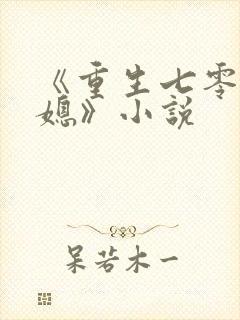 《重生七零
媳》小説
呆若木一